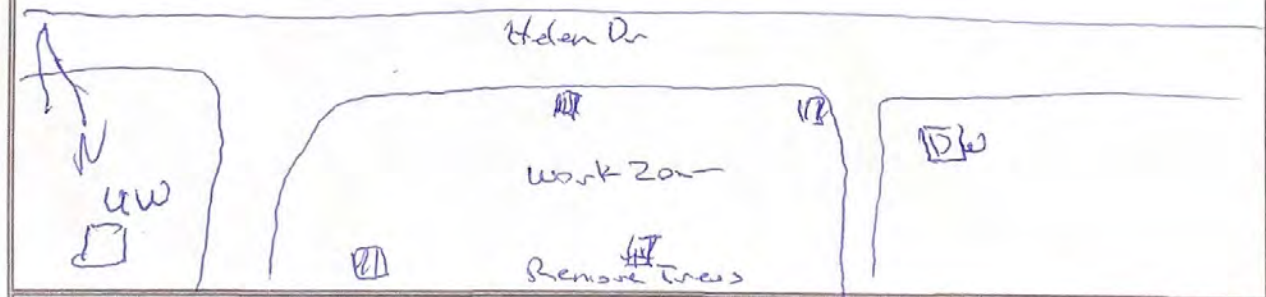 Helen Dr
N
UW
DW
Work Zone
Remove Trees